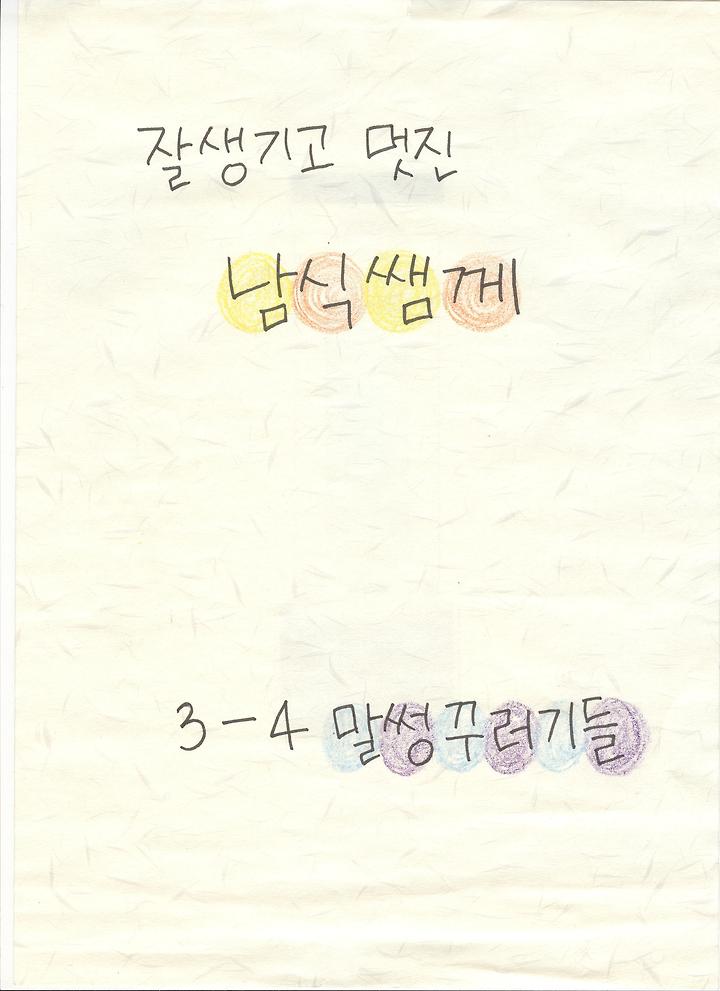 잘생기고 멋진
남식쌤께
3-4 말썽꾸러기들